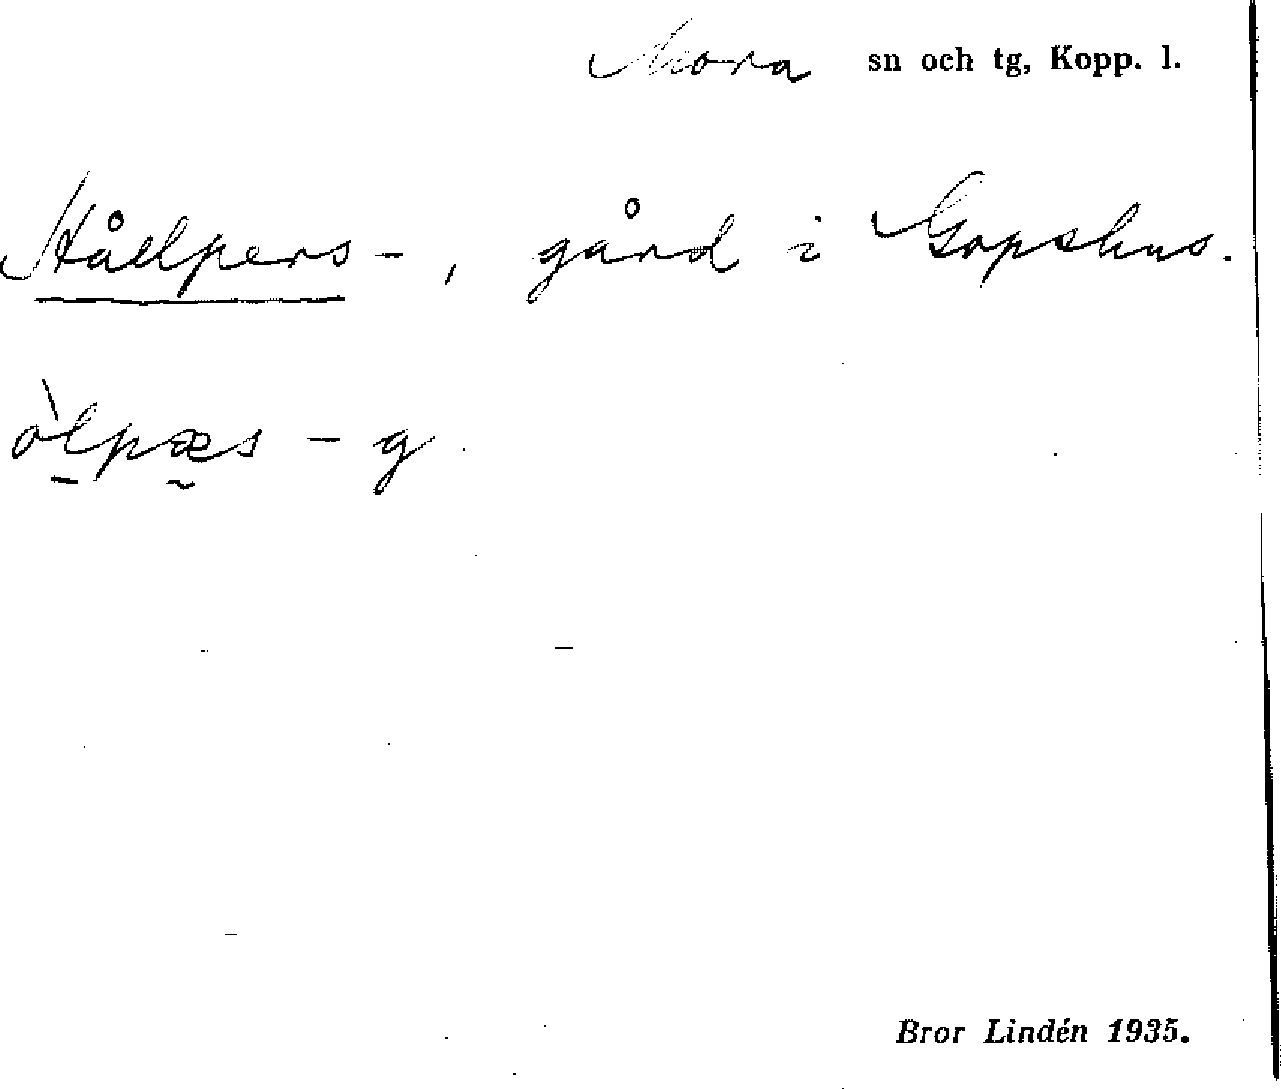 Mora sn och tg, Kopp. l.
Hållpers-, gård i Gopshus.
òlpæs - g.
Bror Lindén 1935.